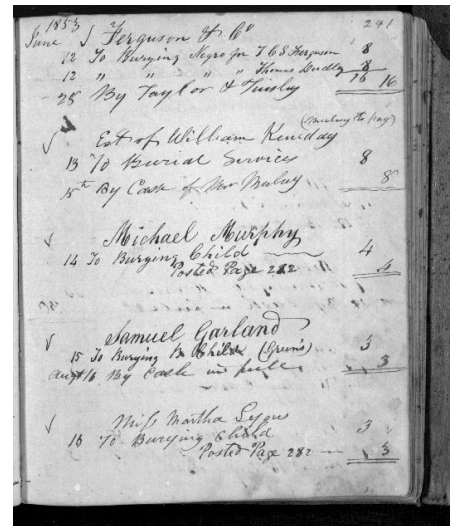 1853 241
June Ferguson & Co
12 To Burying Negro for T C S Ferguson 8
12 " " " " Thomas Dudley 8
16 16
28 By Taylor &
(Mulvy to pay)
Est of William
13 To Burial Services 8
15th By Cash of Mr Mulvy 8
Michael Murphy
14 To Burying Child 4
Posted Page 282 4
Samuel Garland
15 To Burying Child (Grun's) 3
Augt 16 By Cash in full 3
Miss Martha Lyons
16 To Burying Child 3
Posted Page 282 3